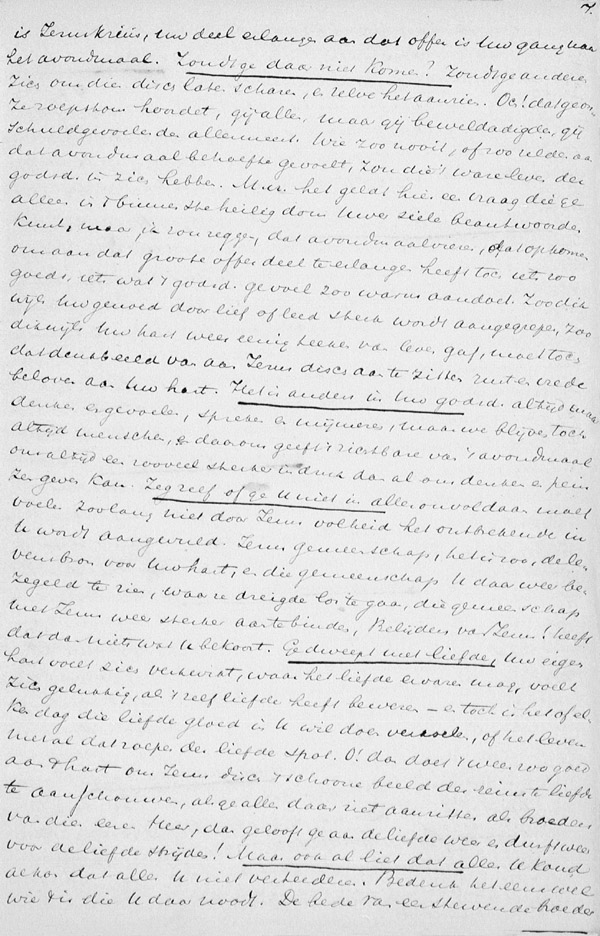 7.
is Jezus kruis, Uw deel erlangen aan dat offer is Uw gang naar
het avondmaal. Zoudt ge daar niet komen? Zoudt ge anderen
zich om dien disch laten scharen, en zelve het aanzien. Och! dat geen
ze roepstem hoordet, gij allen, maar gij beweldadigden, gij
schuldgevoelenden allermeest. Wie zoo nooit, of zoo zelden aan
dat avondmaal behoefte gevoelt, zou die 't ware leven der
godsd. in zich hebben. M.H. het geldt hier een vraag die ge
alleen in 't binnenste heiligdom Uwer ziele beantwoorden
kunt, maar ja ik zou zeggen, dat avondmaalvieren, dat opkomen
om aan dat groote offer deel te erlangen heeft toch iets zoo
goeds, iets wat 't godsd. gevoel zoo warm aandoet. Zoo dik
wijls Uw gemoed door lief of leed sterk wordt aangegrepen, zoo
dikwijls Uw hart weer eenig teeken van leven gaf, moet toch
dat denkbeeld van aan Jezus disch aan te zitten rust en vrede
beloven aan Uw hart. Het is anders in Uw godsd. altijd maar
denken en gevoelen, spreken en mijmeren, maar we blijven toch
altijd menschen, en daarom geeft 't zichtbare van 't avondmaal
ons altijd een zooveel sterker indruk dan al ons denken en pein
zen geven kan. Zeg zelf of ge U niet in alles onvoldaan moet
voelen zoolang niet door Jezus volheid het ontbrekende in
U wordt aangevuld. Jezus gemeenschap, het is zoo, de le-
vensbron voor Uw hart, en die gemeenschap U daar weer be-
zegeld te zien, waar ze dreigde los te gaan, die gemeenschap
met Jezus weer sterker aan te binden, Belijders van Jezus! heeft
dat dan niets wat U bekoort. Gedweept met liefde, Uw eigen
hart voelt zich verkwikt, waar het liefde ervaren mag, voelt
zich gelukkig, als 't zelf liefde heeft bewezen – en toch is het of el-
ken dag die liefde gloed in U wil doen verkoelen, of het leven
met al dat roepen der liefde spot. O! dan doet 't weer zoo goed
aan 't hart om Jezus disch 't schoone beeld der reinste liefde
te aanschouwen, als ge allen daar ziet aanzitten als broeders
van dien eenen Heer, dan gelooft ge aan de liefde weer en durft weer
voor de liefde strijden! Maar ook al liet dat alles U koud
al kon dat alles U niet verteederen. Bedenk het eens wel
wie 't is die U daar noodt. De bede van een stervende broeder